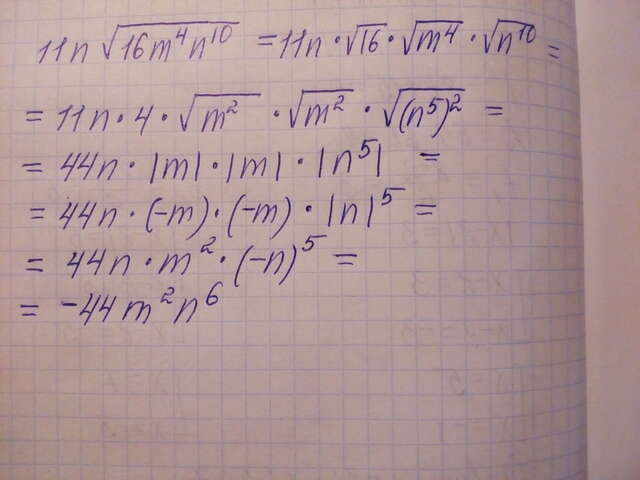 11n √(16m⁴n¹⁰) = 11n · √16 · √m⁴ · √n¹⁰ =
= 11n · 4 · √m² · √m² · √(n⁵)² =
= 44n · |m| · |m| · |n⁵| =
= 44n · (-m) · (-m) · |n|⁵ =
= 44n · m² · (-n)⁵ =
= -44m²n⁶